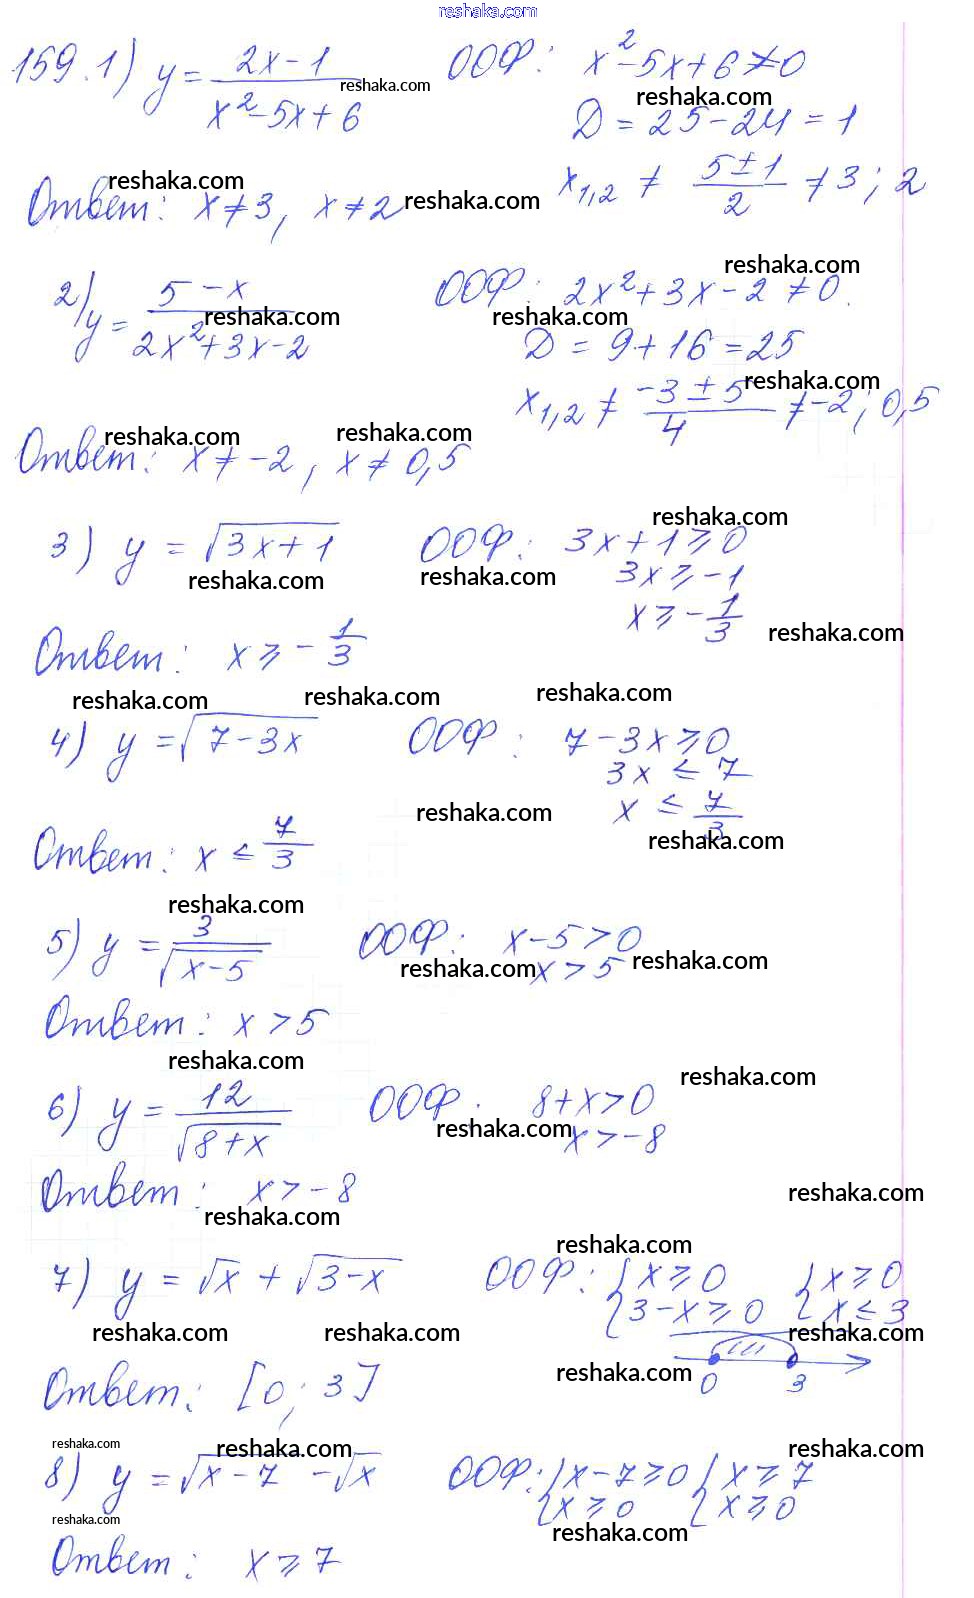 reshaka.com
159.1) y = (2x-1)/(x²-5x+6) reshaka.com ООФ: x²-5x+6≠0
reshaka.com
D = 25-24 = 1
x₁,₂ ≠ (5±1)/2 ≠ 3; 2
reshaka.com
Ответ: x≠3, x≠2 reshaka.com
reshaka.com
2) y = (5-x)/(2x²+3x-2) ООФ: 2x²+3x-2≠0.
reshaka.com reshaka.com
D = 9+16 = 25
x₁,₂ ≠ (-3±5)/4 ≠ -2; 0,5
reshaka.com
reshaka.com reshaka.com
Ответ: x≠-2, x≠0,5
reshaka.com
3) y = √(3x+1) ООФ: 3x+1⩾0
reshaka.com reshaka.com 3x⩾-1
x⩾-1/3 reshaka.com
Ответ: x⩾-1/3
reshaka.com reshaka.com reshaka.com
4) y = √(7-3x) ООФ: 7-3x⩾0
3x ≤ 7
reshaka.com x ≤ 7/3
reshaka.com
Ответ: x ≤ 7/3
reshaka.com
5) y = 3/√(x-5) ООФ: x-5>0
reshaka.com x>5 reshaka.com
Ответ: x>5
reshaka.com reshaka.com
6) y = 12/√(8+x) ООФ. 8+x>0
reshaka.com x>-8
Ответ: x>-8 reshaka.com
reshaka.com
reshaka.com
7) y = √x + √(3-x) ООФ: { x⩾0 { x⩾0
3-x⩾0 x≤3
reshaka.com reshaka.com reshaka.com
reshaka.com 0 3
Ответ: [0; 3]
reshaka.com reshaka.com reshaka.com
8) y = √(x-7) - √x ООФ: { x-7⩾0 { x⩾7
x⩾0 x⩾0
reshaka.com reshaka.com
Ответ: x⩾7